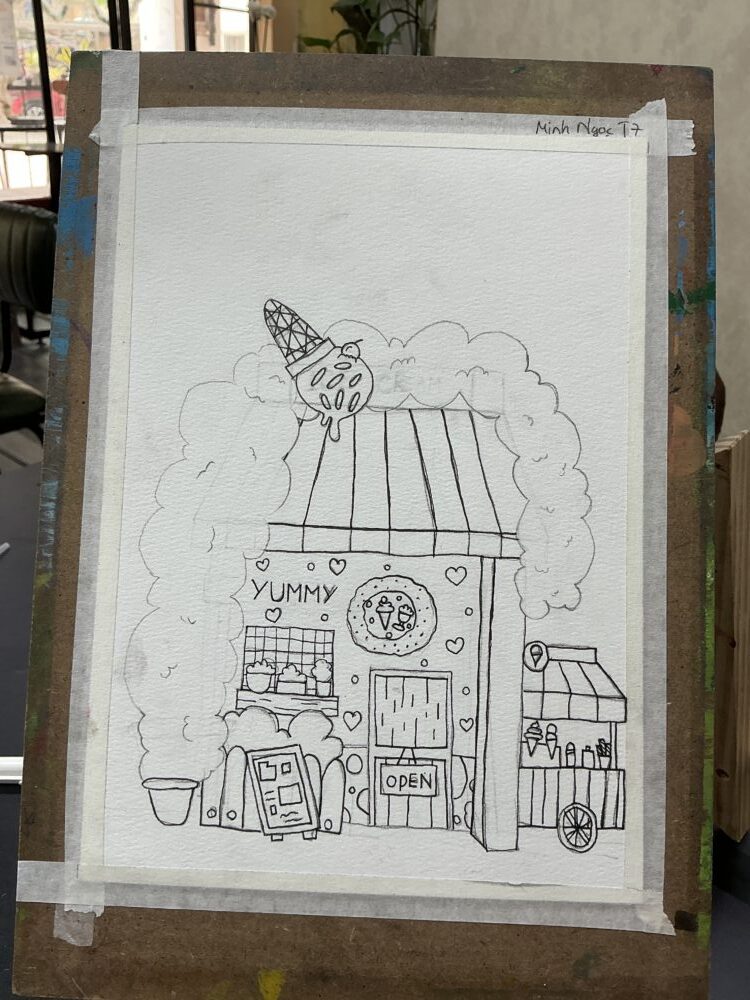 Minh Ngọc T7
YUMMY
OPEN